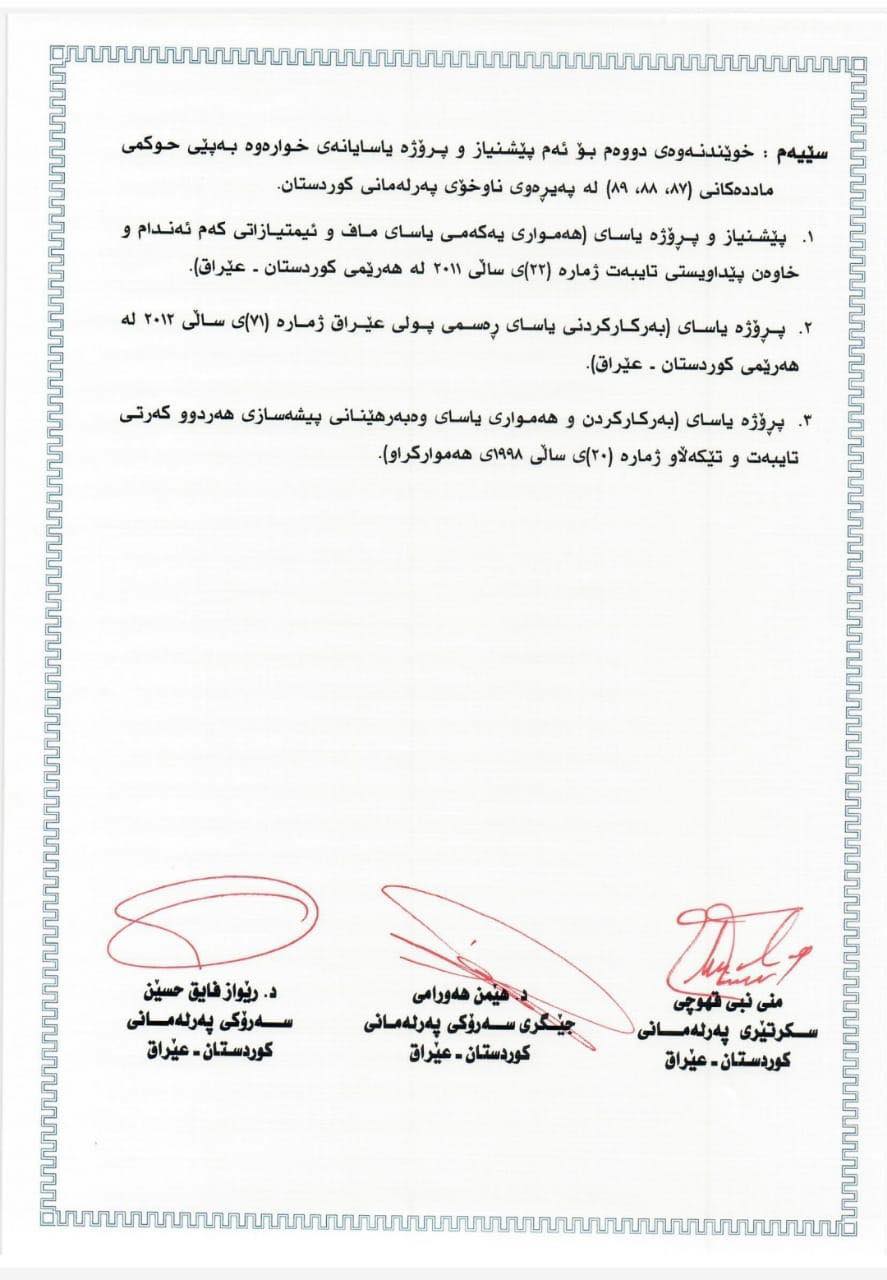 سێیەم : خوێندنەوەی دووەم بۆ ئەم پێشنیاز و پرۆژە یاسایانەی خوارەوە بەپێی حوکمی
ماددەکانی (٨٧، ٨٨، ٨٩) لە پەیڕەوی ناوخۆی پەرلەمانی کوردستان.
١. پێشنیاز و پرۆژە یاسای (هەمواری یەکەمی یاسای ماف و ئیمتیازاتی کەم ئەندام و
خاوەن پێداویستی تایبەت ژمارە (٢٢)ی ساڵی ٢٠١١ لە هەرێمی کوردستان ـ عێراق).
٢. پرۆژە یاسای (بەرکارکردنی یاسای ڕەسمی پولی عێراق ژمارە (٧١)ی ساڵی ٢٠١٢ لە
هەرێمی کوردستان ـ عێراق).
٣. پرۆژە یاسای (بەرکارکردن و هەمواری یاسای وەبەرهێنانی پیشەسازی هەردوو کەرتی
تایبەت و تێکەڵاو ژمارە (٢٠)ی ساڵی ١٩٩٨ی هەموارکراو).
منی نبی قهوچی
سکرتێری پەرلەمانی
کوردستان ـ عێراق
د. هێمن هەورامی
جێگری سەرۆکی پەرلەمانی
کوردستان ـ عێراق
د. رێواز فایق حسێن
سەرۆکی پەرلەمانی
کوردستان ـ عێراق